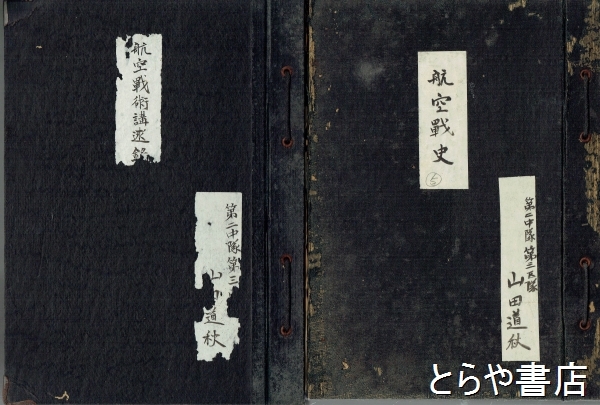 航空戰術講述録
第二中隊第三
山
道秋
航空戰史
⑤
第二中隊第三区隊
山田道秋
とらや書店